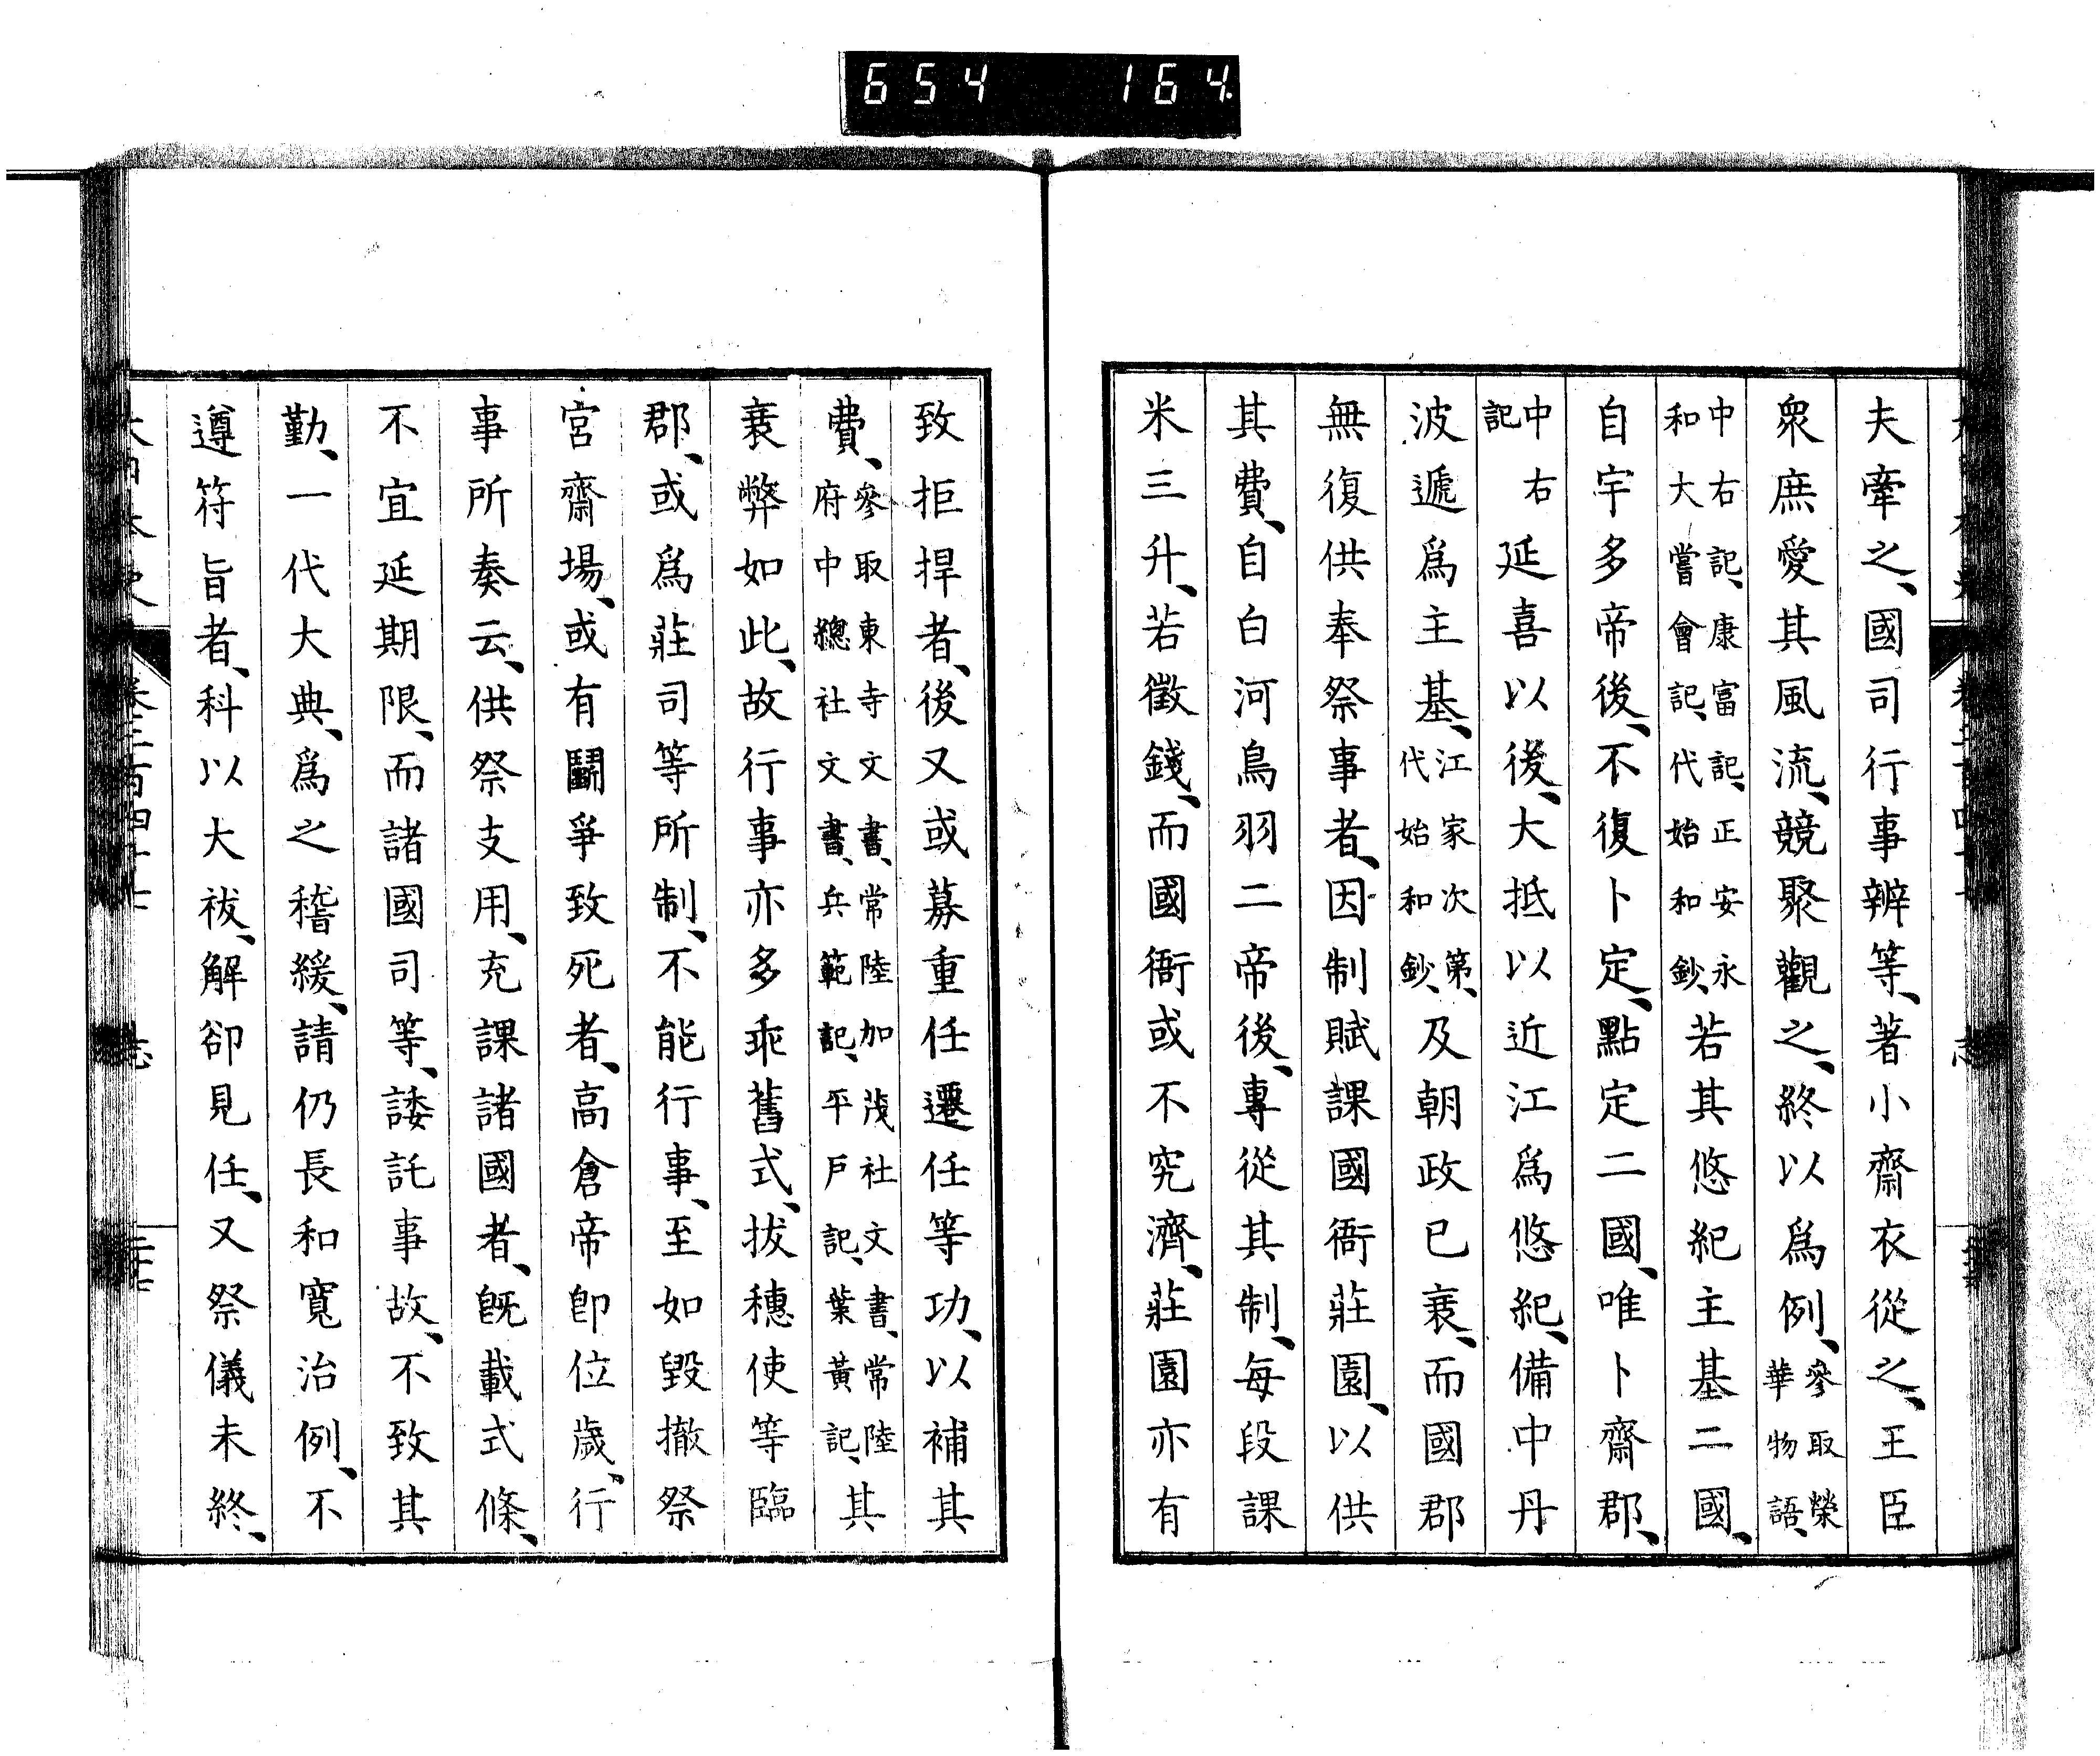 654 164
夫牽之、國司行事辨等、著小齋衣從之、王臣
衆庶愛其風流、競聚觀之、終以爲例、參取榮華物語、
中右記、康富記、正安永和大嘗會記、代始和鈔、若其悠紀主基二國、
自宇多帝後、不復卜定、點定二國、唯卜齋郡、
中右記延喜以後、大抵以近江爲悠紀、備中丹
波遞爲主基、江家次第、代始和鈔、及朝政已衰、而國郡
無復供奉祭事者、因制賦課國衙莊園、以供
其費、自白河鳥羽二帝後、專從其制、每段課
米三升、若徵錢、而國衙或不究濟、莊園亦有
致拒捍者、後又或募重任遷任等功、以補其
費、參取東寺文書、常陸加茂社文書、常陸府中總社文書、兵範記、平戶記、葉黃記、其
衰弊如此、故行事亦多乖舊式、拔穗使等臨
郡、或爲莊司等所制、不能行事、至如毀撤祭
宮齋場、或有鬭爭致死者、高倉帝卽位歲、行
事所奏云、供祭支用、充課諸國者、既載式條、
不宜延期限、而諸國司等、諉託事故、不致其
勤、一代大典、爲之稽緩、請仍長和寬治例、不
遵符旨者、科以大祓、解卻見任、又祭儀未終、
大日本史 卷三百四十七 志